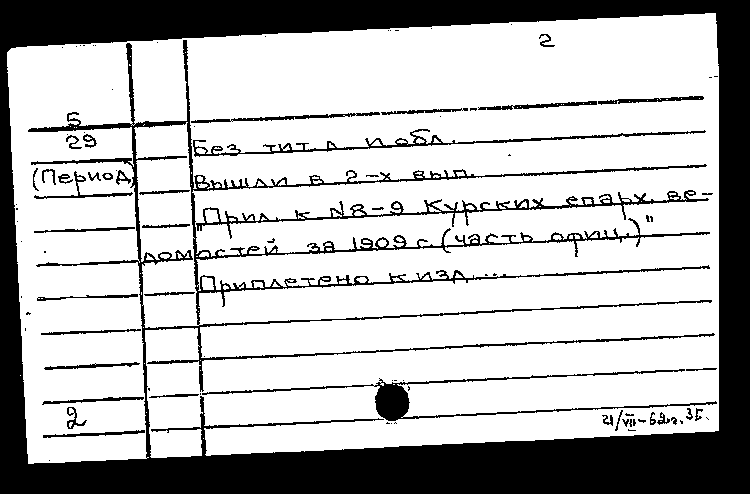 2
5
29
Без тит. л и обл.
(Период)
Вышли в 2-х вып.
"Прил. к N8-9 Курских епарх. ве-
домостей за 1909 г. (часть офиц.)"
Приплетено к изд ...
2
21/VII-62г.